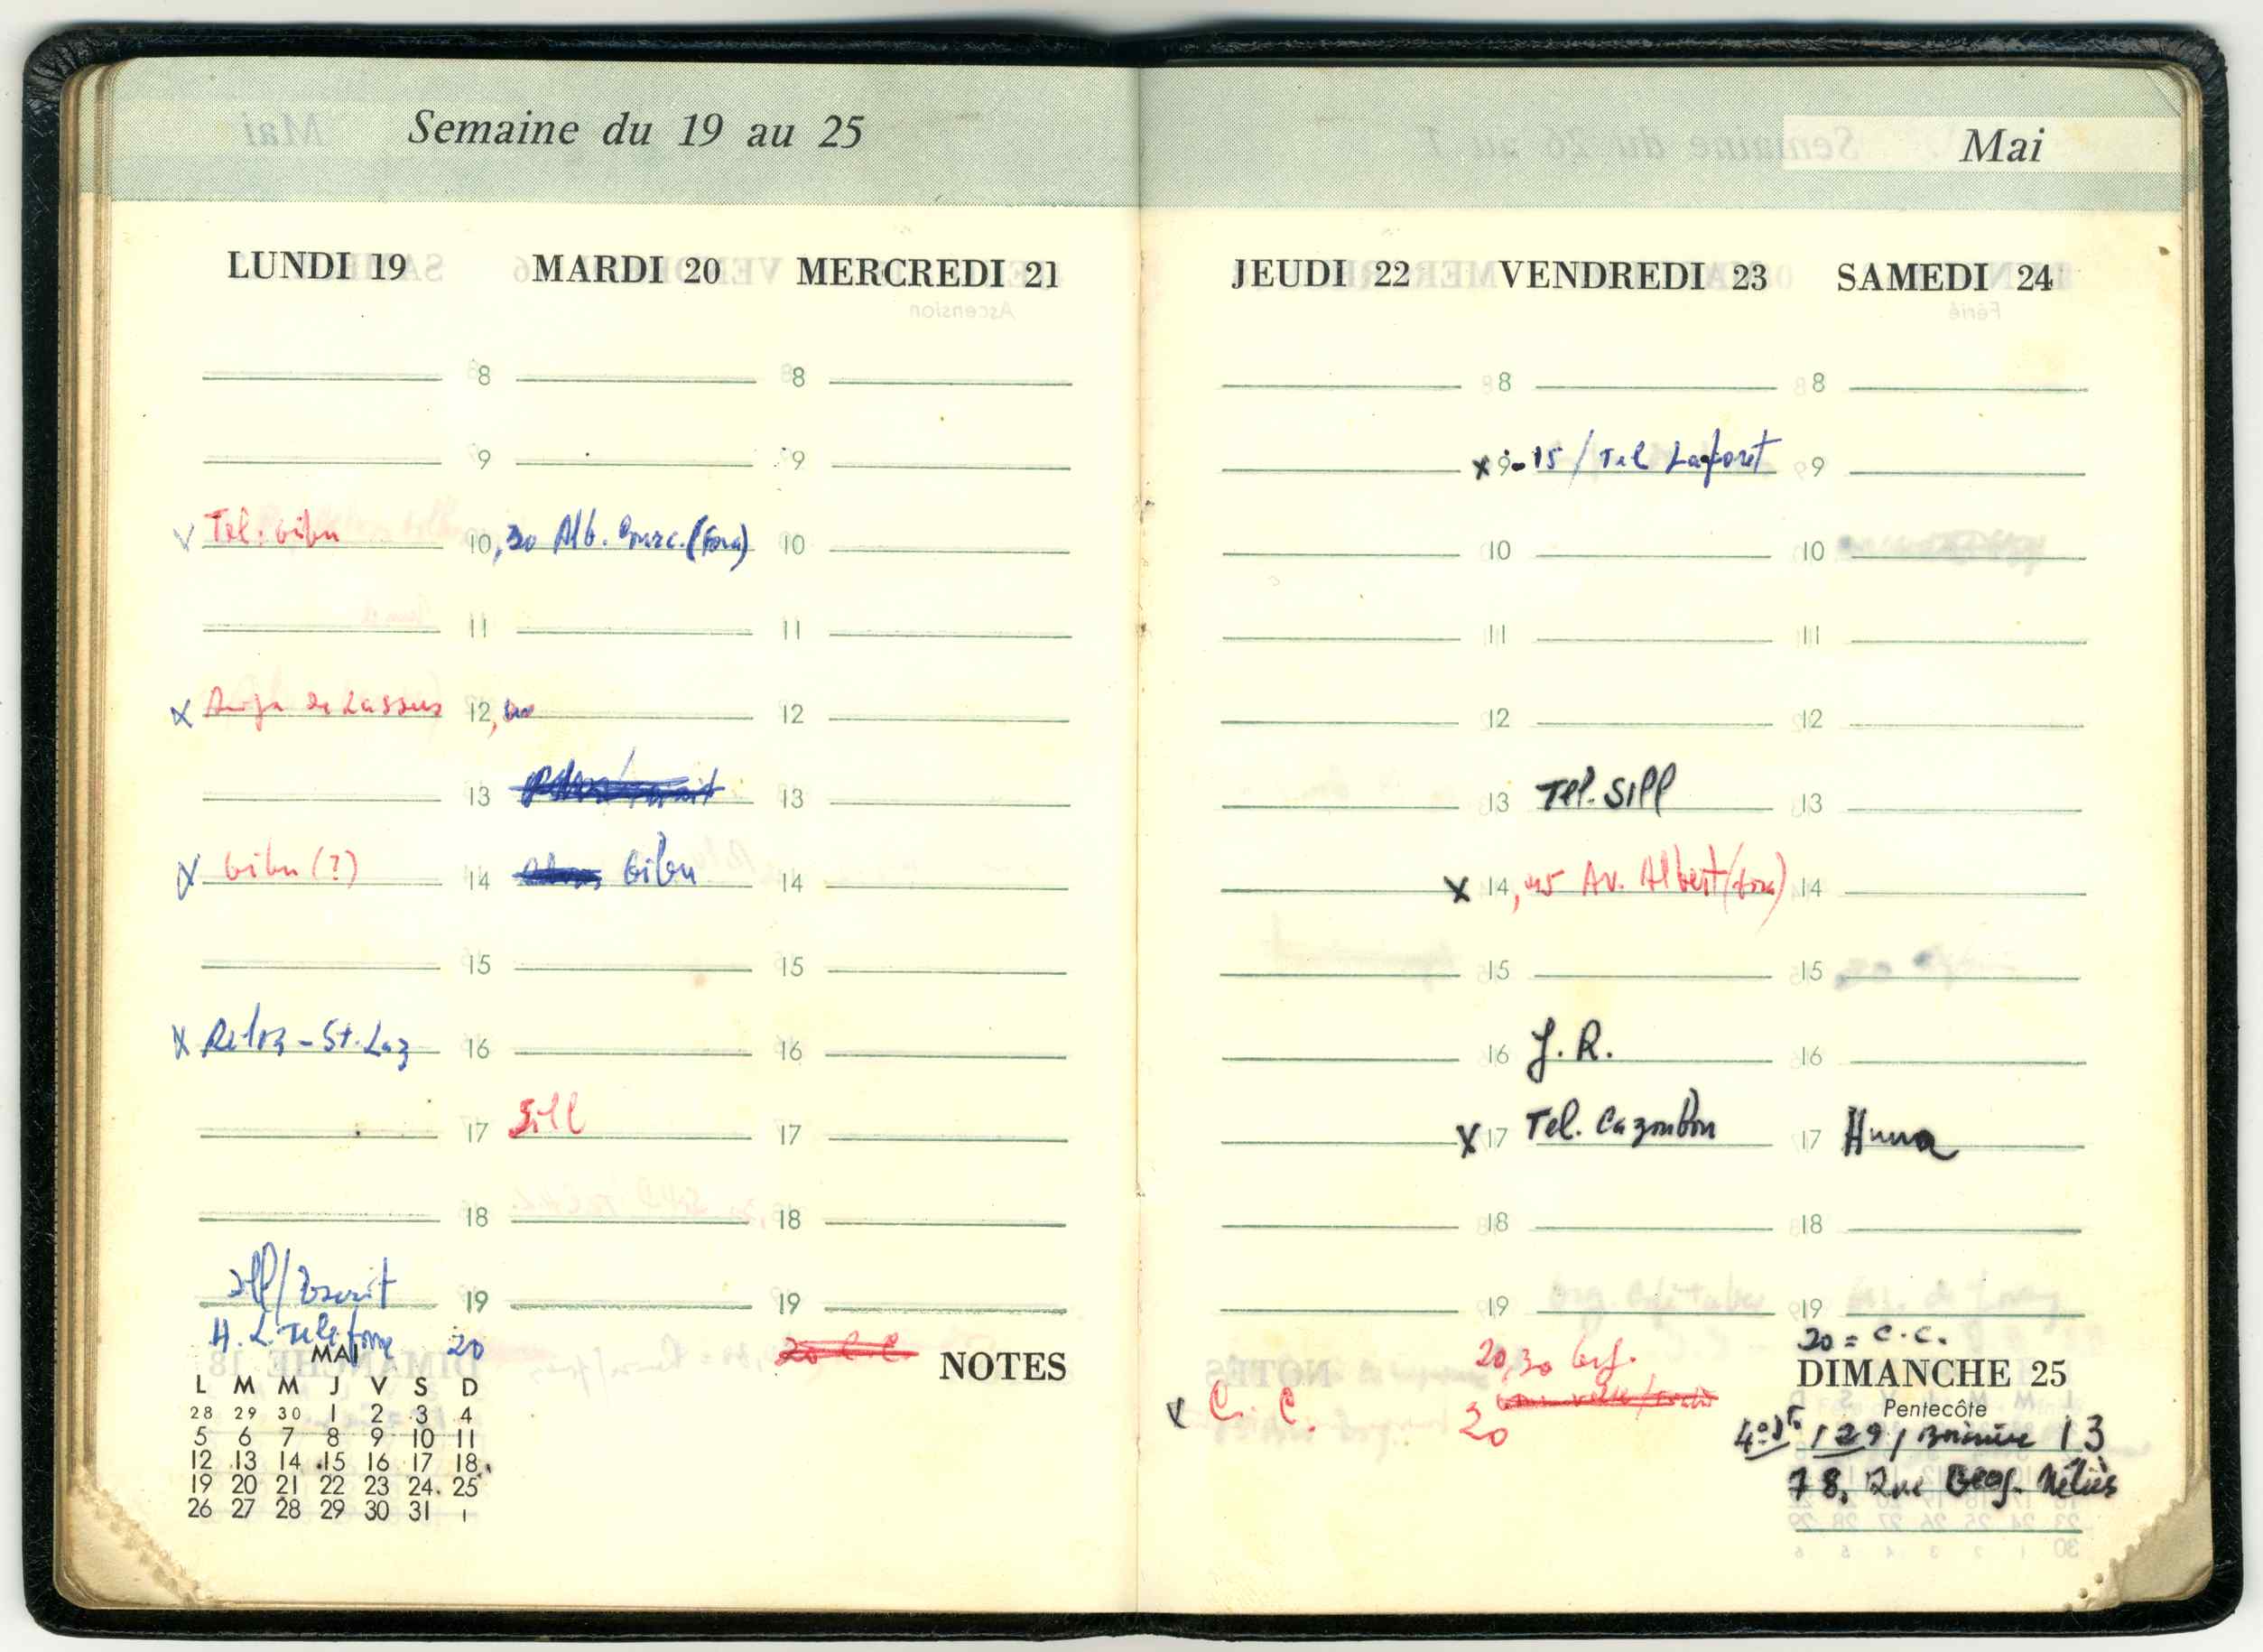 Semaine du 19 au 25
LUNDI 19 MARDI 20 MERCREDI 21
8 8
9 9
Tel. bibu 10,30 Alb. (Fona) 10
11 11
de Lassus 12, 12
13 13
bibu (?) 14 bibu 14
15 15
x Reloz - St. Laz 16 16
17 Sill 17
18 18
19 19
H. L. Telefone 20
20 C.C.
MAI
L M M J V S D
28 29 30 1 2 3 4
5 6 7 8 9 10 11
12 13 14 15 16 17 18
19 20 21 22 23 24 25
26 27 28 29 30 31 1
NOTES
Mai
JEUDI 22 VENDREDI 23 SAMEDI 24
8 8
x 9-15 / Tel Laforet 9
10 10
11 11
12 12
13 Tel. Sill 13
x 14,45 Av. Albert (fona) 14
15 15
16 J. R. 16
x 17 Tel. Cazenbon 17 Huna
18 18
19 19
20,30
x C. C. 20
20 = C.C.
DIMANCHE 25
Pentecôte
129, 13
78, Rue Geog. Méliès